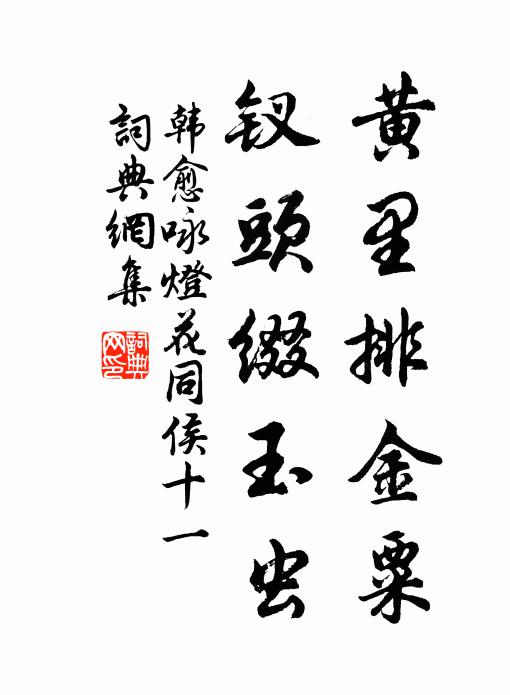 黄里排金粟
钗头缀玉虫
韩愈咏燈花同侯十一
詞典網集
詞典网印